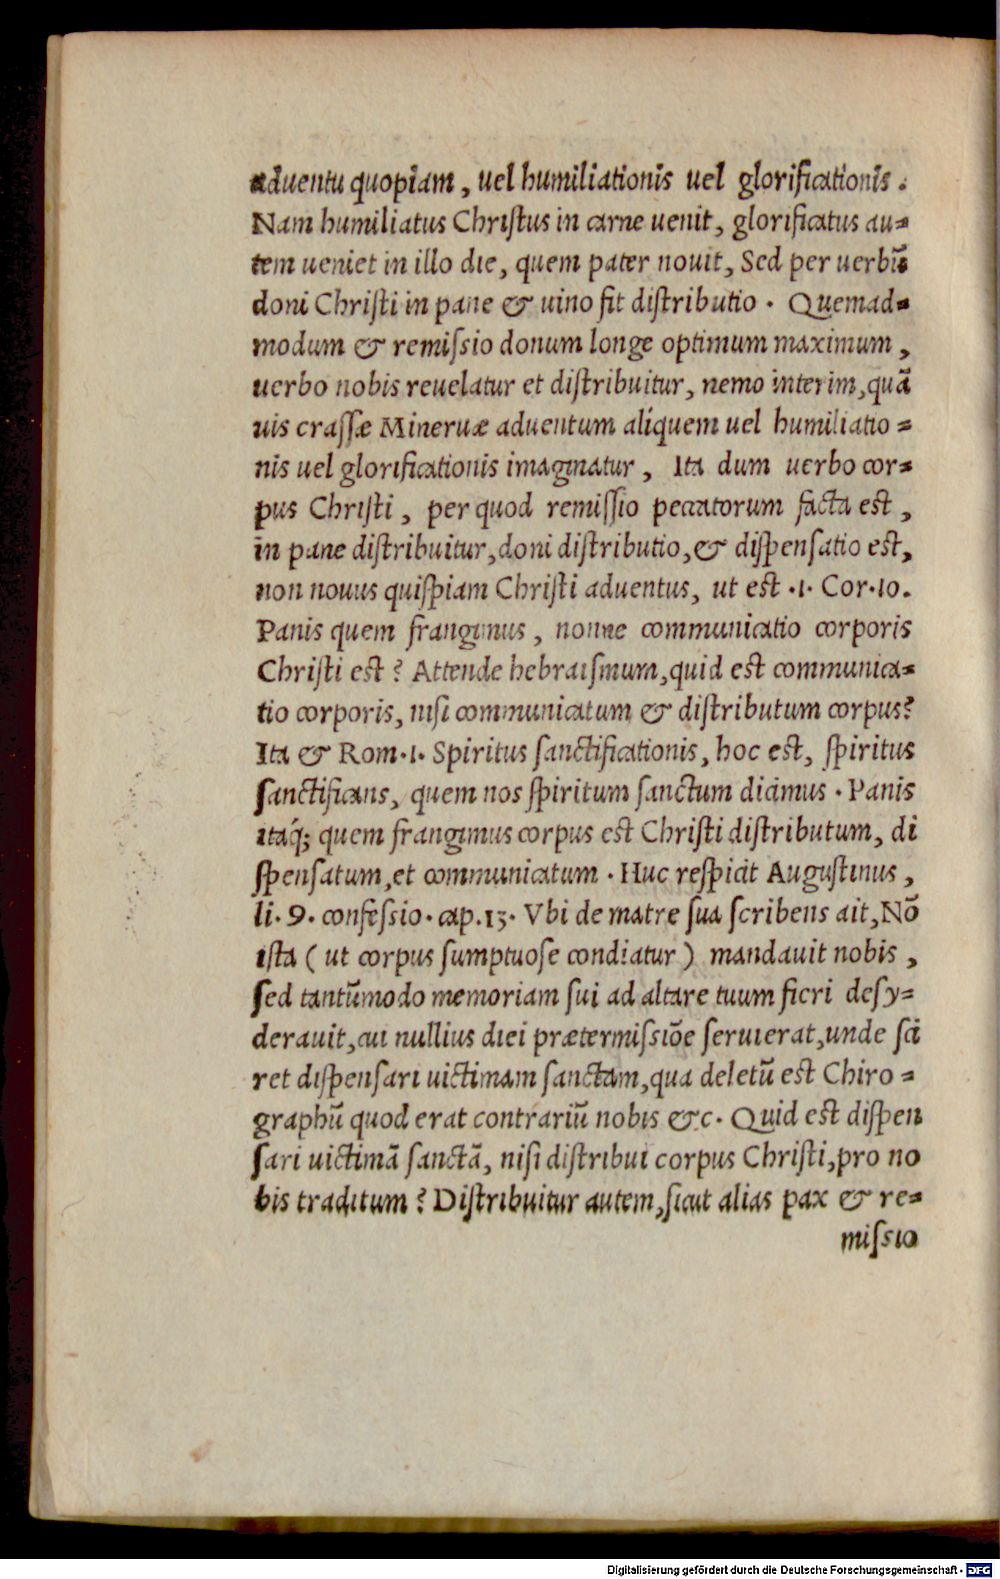 aduentu quopiam, uel humiliationis uel glorificationis.
Nam humiliatus Chriſtus in carne uenit, glorificatus au=
tem ueniet in illo die, quem pater nouit, Sed per uerbū
doni Chriſti in pane & uino fit diſtributio. Quemad=
modum & remiſsio donum longe optimum maximum,
uerbo nobis reuelatur et diſtribuitur, nemo interim, quā
uis craſſæ Mineruæ aduentum aliquem uel humiliatio=
nis uel glorificationis imaginatur, Ita dum uerbo cor=
pus Chriſti, per quod remiſſio peccatorum facta est,
in pane diſtribuitur, doni diſtributio, & diſpenſatio est,
non nouus quiſpiam Chriſti aduentus, ut est .1. Cor.10.
Panis quem frangimus, nonne communicatio corporis
Chriſti est? Attende hebraiſmum, quid est communica=
tio corporis, niſi communicatum & diſtributum corpus?
Ita & Rom.1. Spiritus ſanctificationis, hoc est, ſpiritus
ſanctificans, quem nos ſpiritum ſanctum dicimus. Panis
itaq́; quem frangimus corpus est Chriſti diſtributum, di
ſpenſatum, et communicatum. Huc reſpicit Auguſtinus,
li. 9. confeſsio. cap.13. Vbi de matre ſua ſcribens ait, Nō
iſta (ut corpus ſumptuoſe condiatur) mandauit nobis,
ſed tantūmodo memoriam ſui ad altare tuum fieri deſy=
derauit, cui nullius diei prætermiſsiōe ſeruierat, unde ſci
ret diſpenſari uictimam ſanctam, qua deletū est Chiro=
graphū quod erat contrariū nobis &c. Quid est diſpen
ſari uictimā ſanctā, niſi diſtribui corpus Chriſti, pro no
bis traditum? Diſtribuitur autem, ſicut alias pax & re=
miſsio
Digitalisierung gefördert durch die Deutsche Forschungsgemeinschaft - DFG